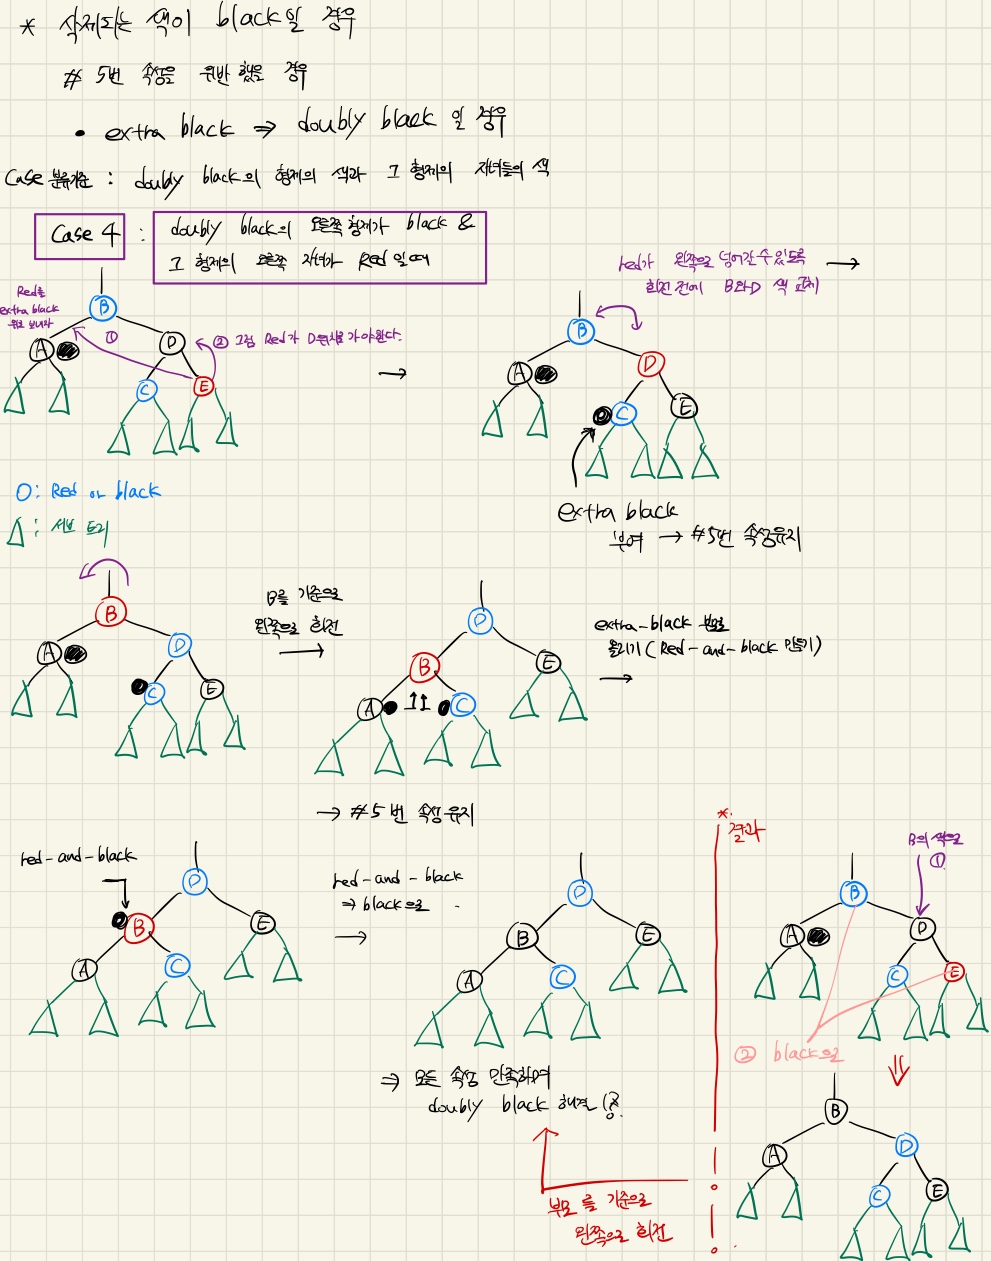 * 삭제되는 색이 black일 경우
# 5번 속성을 위반했을 경우
• extra black ⇒ doubly black 일 경우
Case 분류기준 : doubly black의 형제의 색과 그 형제의 자녀들의 색
Case 4 : doubly black의 오른쪽 형제가 black &
그 형제의 오른쪽 자녀가 Red 일때
Red를
extra black
위로 보내자
①
② 그럼 Red가 D위치로 가야된다.
B
A
D
C
E
→
red가 왼쪽으로 넘어갈 수 있도록 →
회전 전에 B와 D 색 교체
B
A
D
C
E
extra black
부여 → #5번 속성유지
O : Red or black
△ : 서브 트리
B
A
D
C
E
B를 기준으로
왼쪽으로 회전
→
D
B
E
A
C
→ #5번 속성유지
extra-black 부모로
올리기 (Red-and-black 만들기)
→
red-and-black
D
B
E
A
C
red-and-black
⇒ black으로
→
D
B
E
A
C
⇒ 모든 속성 만족하며
doubly black 해결
부모를 기준으로
왼쪽으로 회전
* 결과
B의 색으로
①
B
A
D
C
E
② black으로
⇓
B
A
D
C
E